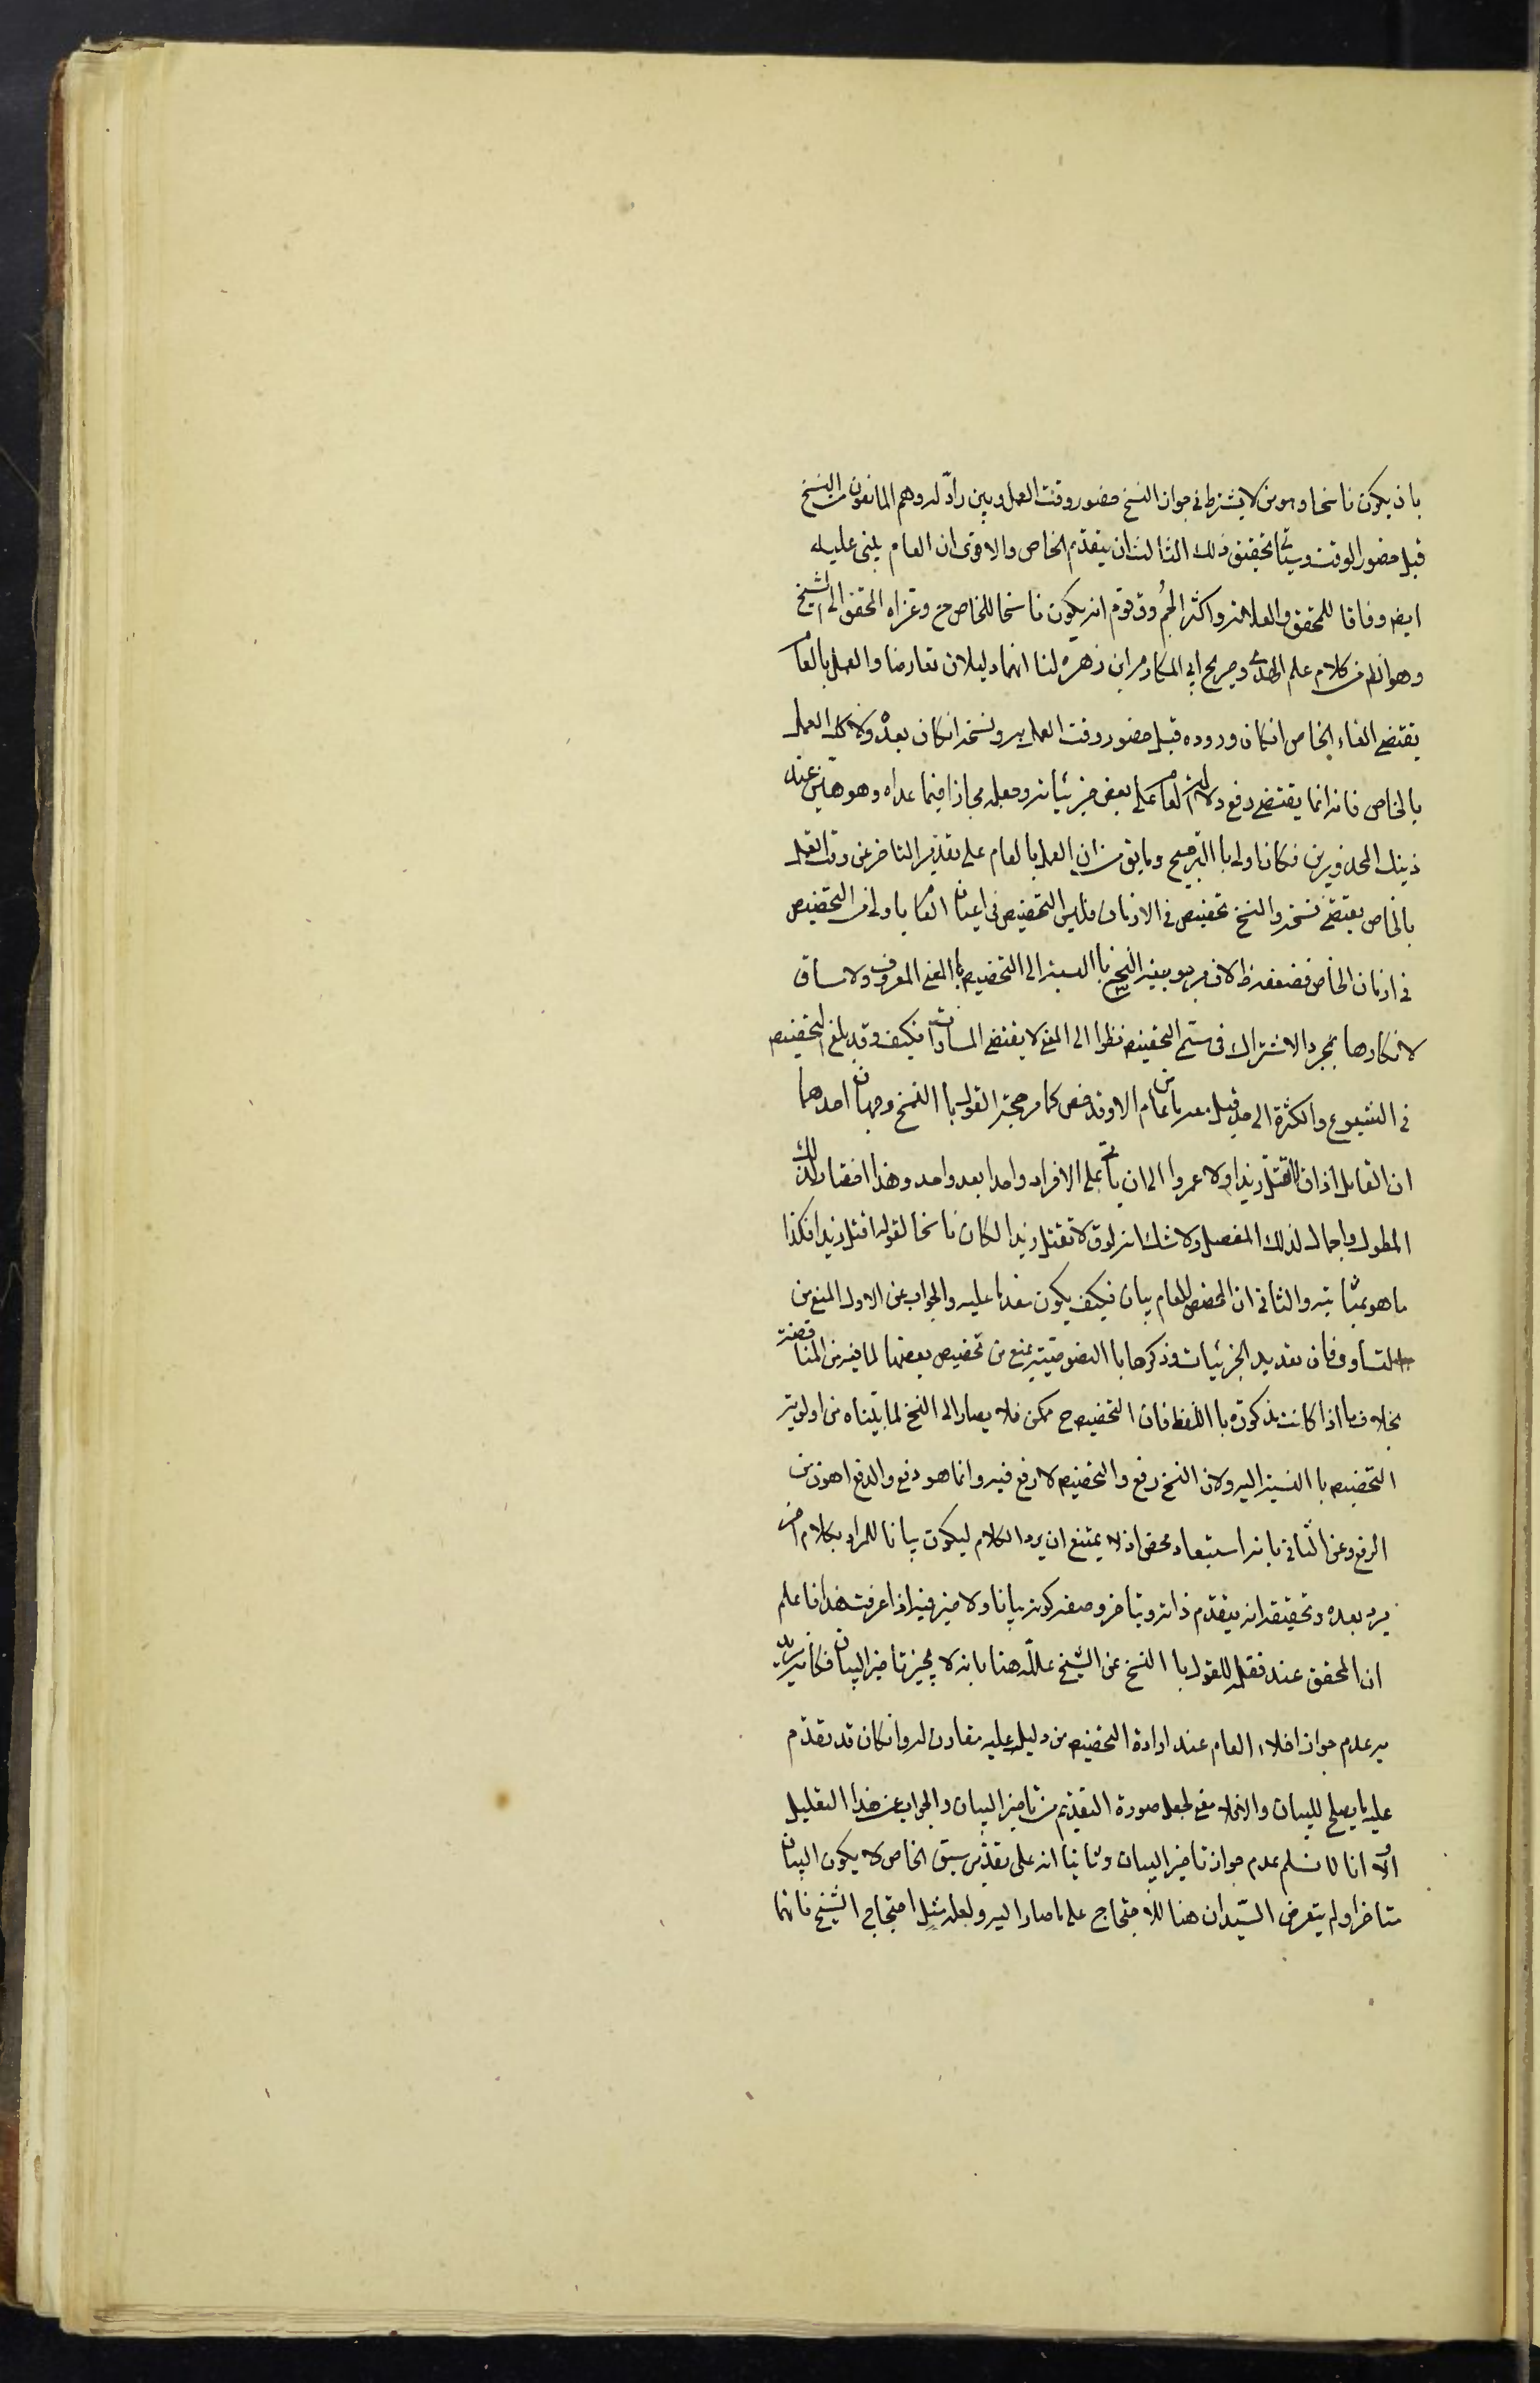 بان يكون ناسخا وهو من لا يشترط في جواز النسخ حضور وقت العمل وبين رادّ له وهم المانعون من النسخ
قبل حضور الوقت وسيأتي تحقيق ذلك الثالث ان يتقدم الخاص والاقوى ان العام يبنى عليه
ايض وفاقا للمحقق والعلامة واكثر الجمهور وقد قوم انه يكون ناسخا للخاص ح وعزاه المحقق الى الشيخ
وهو الظ من كلام علم الهدى وصريح ابي المكارم ابن زهرة لنا انهما دليلان تعارضا والعمل بالعام
يقتضي الغاء الخاص انكان وروده قبل حضور وقت العمل به ونسخه انكان بعده ولا كك العمل
بالخاص فانه انما يقتضي دفع دلالة العام على بعض جزئياته وجعله مجازا فيما عداه وهو هيّن عند
ذينك المحذورين فكان اولى با الترجيح وما يق من ان العمل بالعام على تقدير التاخر عن وقت العمل
بالخاص يقتضي نسخه والنسخ تخصيص في الازمان فليس التخصيص في اعيان العام باولى من التخصيص
في ازمان الخاص فضعفه ظ لان مرجوحية النسخ با النسبة الى التخصيص با المعنى المعروف ولا مساق
لانكارها بمجرد الاشتراك في مسمى التخصيص نظرا الى المعنى لا يقتضي المساواة كيف وقد بلغ التخصيص
في الشيوع والكثرة الى حد قيل معه ما من عام الا وقد خص كما مر حجة القول با النسخ وجهان احدهما
ان القايل اذا ق اقتل زيدا ولا عمروا الى ان يأتي على الافراد واحدا بعد واحد وهذا اختصار لذلك
المطول واجمال لذلك المفصل ولا شك انه لو ق لا تقتل زيدا لكان ناسخا لقوله اقتل زيدا فكذا
ما هو بمثابته والثاني ان المخصص للعام بيان فكيف يكون مقدما عليه والجواب عن الاول المنع من
التساوي فان تعديد الجزئيات وذكرها با النصوصية يمنع من تخصيص بعضها لما فيه من المناقضة
بخلاف ما اذا كانت مذكورة با اللفظ فان التخصيص ح ممكن فلا يصار الى النسخ لما بيّناه من اولوية
التخصيص با النسبة اليه ولان النسخ رفع والتخصيص لا رفع فيه وانما هو دفع والدفع اهون من
الرفع وعن الثاني بانه استبعاد محض اذ لا يمتنع ان يرد الكلام ليكون بيانا للمراد بكلام اخر
يرد بعده وتحقيقه انه يتقدم ذاته ويتاخر وصف كونه بيانا ولا ضير فيه اذا عرفت هذا فاعلم
ان المحقق عند نقله للقول با النسخ عن الشيخ علله هنا بانه لا يجيز تاخير البيان فكانه يريد
به عدم جواز اخلاء العام عند ارادة التخصيص من دليل عليه مقارن له وانكان قد تقدم
عليه ما يصلح للبيان والا فلا معنى لجعل صورة التقديم من تاخير البيان والجواب عن هذا التعليل
اولا انا لا نسلم عدم جواز تاخير البيان وثانيا انه على تقدير سبق الخاص لا يكون البيان
متاخرا ولم يتعرض السيدان هنا للاحتجاج على ما صارا اليه ولعله مثل احتجاج الشيخ فانهما